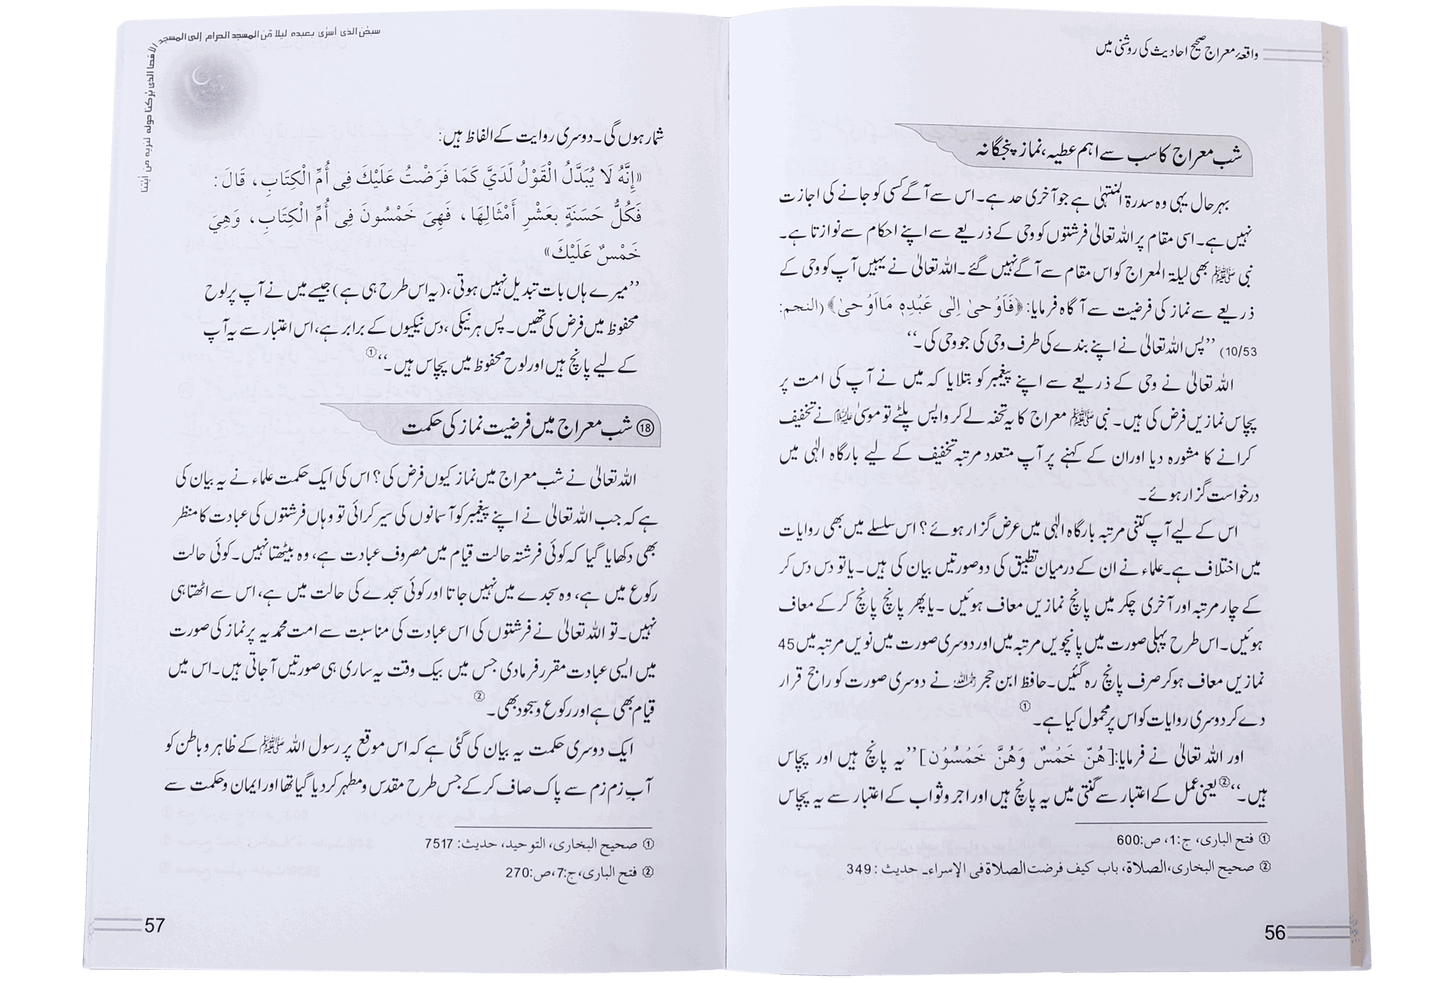 واقعۂ معراج صحیح احادیث کی روشنی میں
شب معراج کا سب سے اہم عطیہ، نماز پنجگانہ
بہرحال یہی وہ سدرۃ المنتہیٰ ہے جو آخری حد ہے۔ اس سے آگے کسی کو جانے کی اجازت
نہیں ہے۔ اسی مقام پر اللہ تعالیٰ فرشتوں کو وحی کے ذریعے سے اپنے احکام سے نوازتا ہے۔
نبی ﷺ بھی لیلۃ المعراج کو اس مقام سے آگے نہیں گئے۔ اللہ تعالیٰ نے یہیں آپ کو وحی کے
ذریعے سے نماز کی فرضیت سے آگاہ فرمایا: ﴿فَاَوْحىٰ اِلىٰ عَبْدِهٖ مَا اَوْحىٰ﴾ (النجم:
10/53) ’’پس اللہ تعالیٰ نے اپنے بندے کی طرف وحی کی جو وحی کی۔‘‘
اللہ تعالیٰ نے وحی کے ذریعے سے اپنے پیغمبر کو بتلایا کہ میں نے آپ کی امت پر
پچاس نمازیں فرض کی ہیں۔ نبی ﷺ معراج کا یہ تحفہ لے کر واپس پلٹے تو موسیٰ علیہ السلام نے تخفیف
کرانے کا مشورہ دیا اور ان کے کہنے پر آپ متعدد مرتبہ تخفیف کے لیے بارگاہ الٰہی میں
درخواست گزار ہوئے۔
اس کے لیے آپ کتنی مرتبہ بارگاہ الٰہی میں عرض گزار ہوئے؟ اس سلسلے میں بھی روایات
میں اختلاف ہے۔ علماء نے ان کے درمیان تطبیق کی دو صورتیں بیان کی ہیں۔ یا تو دس دس کر
کے چار مرتبہ اور آخری چکر میں پانچ نمازیں معاف ہوئیں۔ یا پھر پانچ پانچ کر کے معاف
ہوئیں۔ اس طرح پہلی صورت میں پانچویں مرتبہ میں اور دوسری صورت میں نویں مرتبہ میں 45
نمازیں معاف ہو کر صرف پانچ رہ گئیں۔ حافظ ابن حجر رحمہ اللہ نے دوسری صورت کو راجح قرار
دے کر دوسری روایات کو اس پر محمول کیا ہے۔①
اور اللہ تعالیٰ نے فرمایا: [هُنَّ خَمْسٌ وَهُنَّ خَمْسُوْنَ] ’’یہ پانچ ہیں اور پچاس
ہیں۔‘‘② یعنی عمل کے اعتبار سے گنتی میں یہ پانچ ہیں اور اجر و ثواب کے اعتبار سے یہ پچاس
① فتح الباری، ج:1، ص:600
② صحیح البخاری، الصلاة، باب كيف فرضت الصلاة فى الإسراء۔ حدیث: 349
56
سبحن الذى أسرى بعبده ليلا من المسجد الحرام إلى المسجد الأقصا الذى بركنا حوله لنريه من ءايتنا
شمار ہوں گی۔ دوسری روایت کے الفاظ ہیں:
«إِنَّهُ لَا يُبَدَّلُ الْقَوْلُ لَدَيَّ كَمَا فَرَضْتُ عَلَيْكَ فِى أُمِّ الْكِتَابِ، قَالَ:
فَكُلُّ حَسَنَةٍ بِعَشْرِ أَمْثَالِهَا، فَهِىَ خَمْسُونَ فِى أُمِّ الْكِتَابِ، وَهِيَ
خَمْسٌ عَلَيْكَ»
’’میرے ہاں بات تبدیل نہیں ہوتی، (یہ اس طرح ہی ہے) جیسے میں نے آپ پر لوح
محفوظ میں فرض کی تھیں۔ پس ہر نیکی، دس نیکیوں کے برابر ہے، اس اعتبار سے یہ آپ
کے لیے پانچ ہیں اور لوح محفوظ میں پچاس ہیں۔‘‘①
⑱ شب معراج میں فرضیت نماز کی حکمت
اللہ تعالیٰ نے شب معراج میں نماز کیوں فرض کی؟ اس کی ایک حکمت علماء نے یہ بیان کی
ہے کہ جب اللہ تعالیٰ نے اپنے پیغمبر کو آسمانوں کی سیر کرائی تو وہاں فرشتوں کی عبادت کا منظر
بھی دکھایا گیا کہ کوئی فرشتہ حالت قیام میں مصروف عبادت ہے، وہ بیٹھتا نہیں۔ کوئی حالت
رکوع میں ہے، وہ سجدے میں نہیں جاتا اور کوئی سجدے کی حالت میں ہے، اس سے اٹھتا ہی
نہیں۔ تو اللہ تعالیٰ نے فرشتوں کی اس عبادت کی مناسبت سے امت محمدیہ پر نماز کی صورت
میں ایسی عبادت مقرر فرما دی جس میں بیک وقت یہ ساری ہی صورتیں آ جاتی ہیں۔ اس میں
قیام بھی ہے اور رکوع و سجود بھی۔②
ایک دوسری حکمت یہ بیان کی گئی ہے کہ اس موقع پر رسول اللہ ﷺ کے ظاہر و باطن کو
آبِ زم زم سے پاک صاف کر کے جس طرح مقدس و مطہر کر دیا گیا تھا اور ایمان و حکمت سے
① صحیح البخاری، التوحید، حدیث: 7517
② فتح الباری، ج:7، ص:270
57